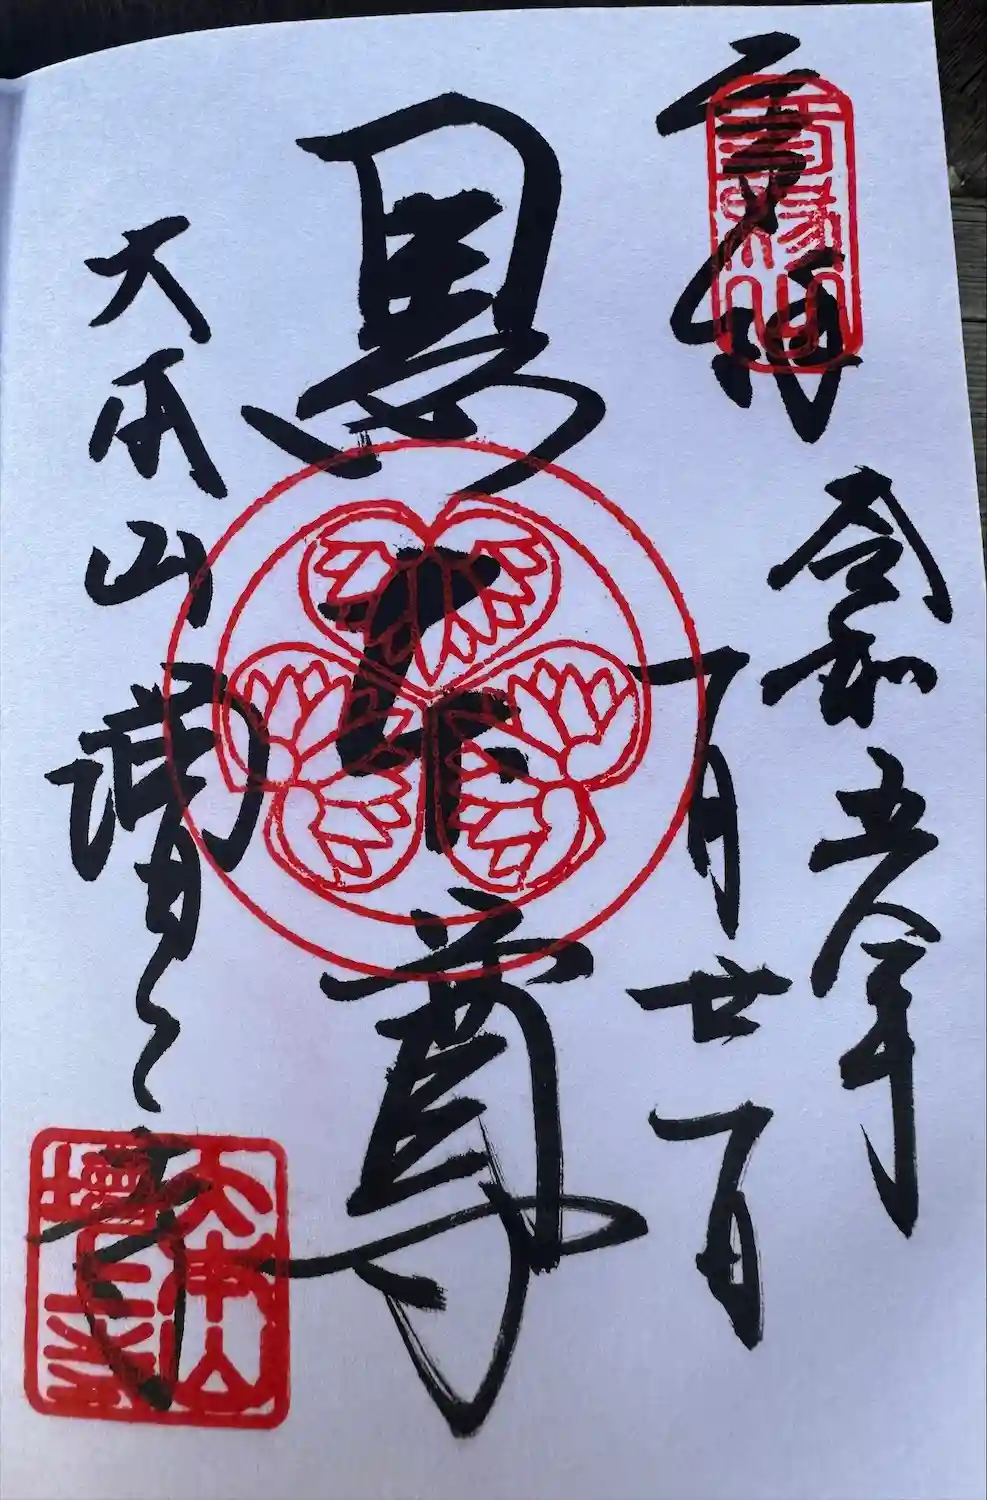 奉拝
令和五年
一月廿一日
黒本尊
大本山増上寺
大本山
増上寺